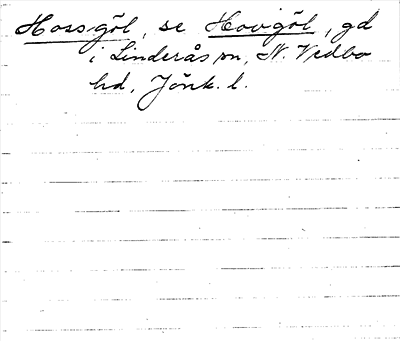 Hossgöl, se Hovgöl, gd
i Linderås sn, N. Vedbo
hd, Jönk. l.